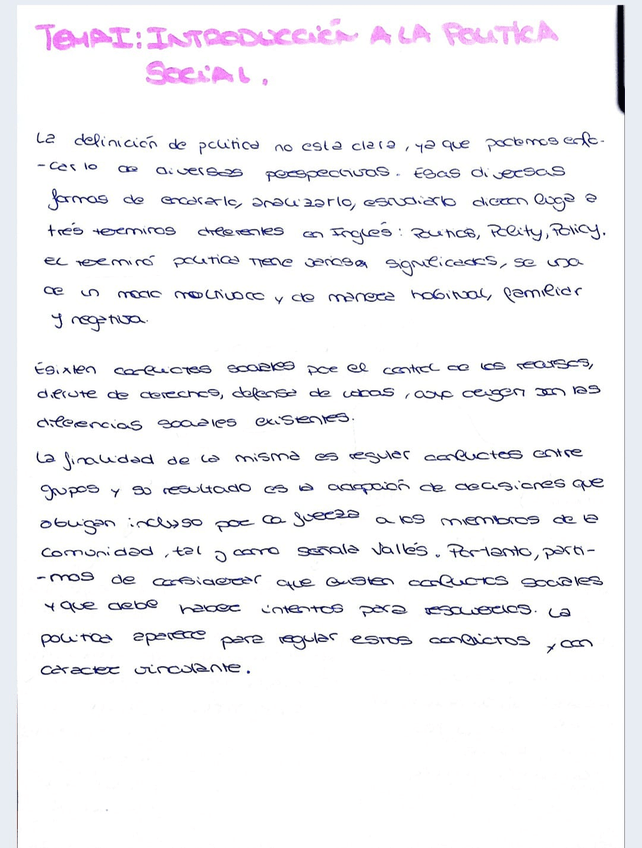 TEMA I: INTRODUCCIÓN A LA POLITICA
SOCIAL.
La definición de política no esta clara, ya que podemos enfo-
-carlo de diversas perspectivas. Esas diversas
formas de encararlo, analizarlo, estudiarlo dicen lugar a
trés términos diferentes en Inglés: Politics, Polity, Policy.
el termino politica tiene varios significados, se usa
de un modo y de manera habitual, familiar
y negativa.
Existen conflictos sociales por el control de los recursos,
disfrute de derechos, defensa de ideas, cuyo origen son las
diferencias sociales existentes.
La finalidad de la misma es regular conflictos entre
grupos y su resultado es la adopción de decisiones que
obligan incluso por la fuerza a los miembros de la
comunidad, tal y como señala Vallés. Portanto, parti-
-mos de considerar que existen conflictos sociales
y que debe haber intentos para resolverlos. La
política aparece para regular estos conflictos y con
caracter vinculante.